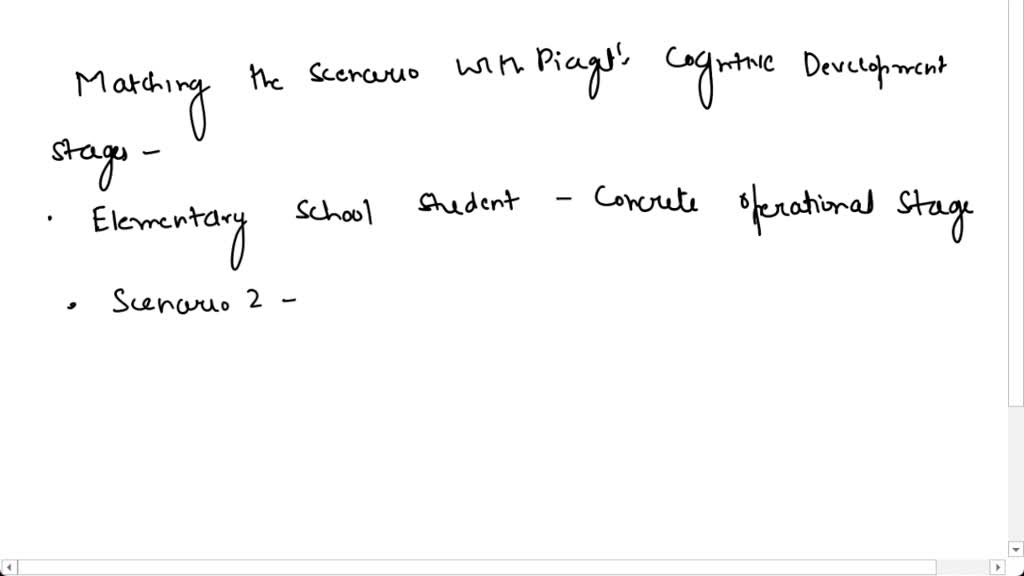 Matching the Scenario with Piaget's Cognitive Development
stages -
• Elementary School student - Concrete operational Stage
• Scenario 2 -